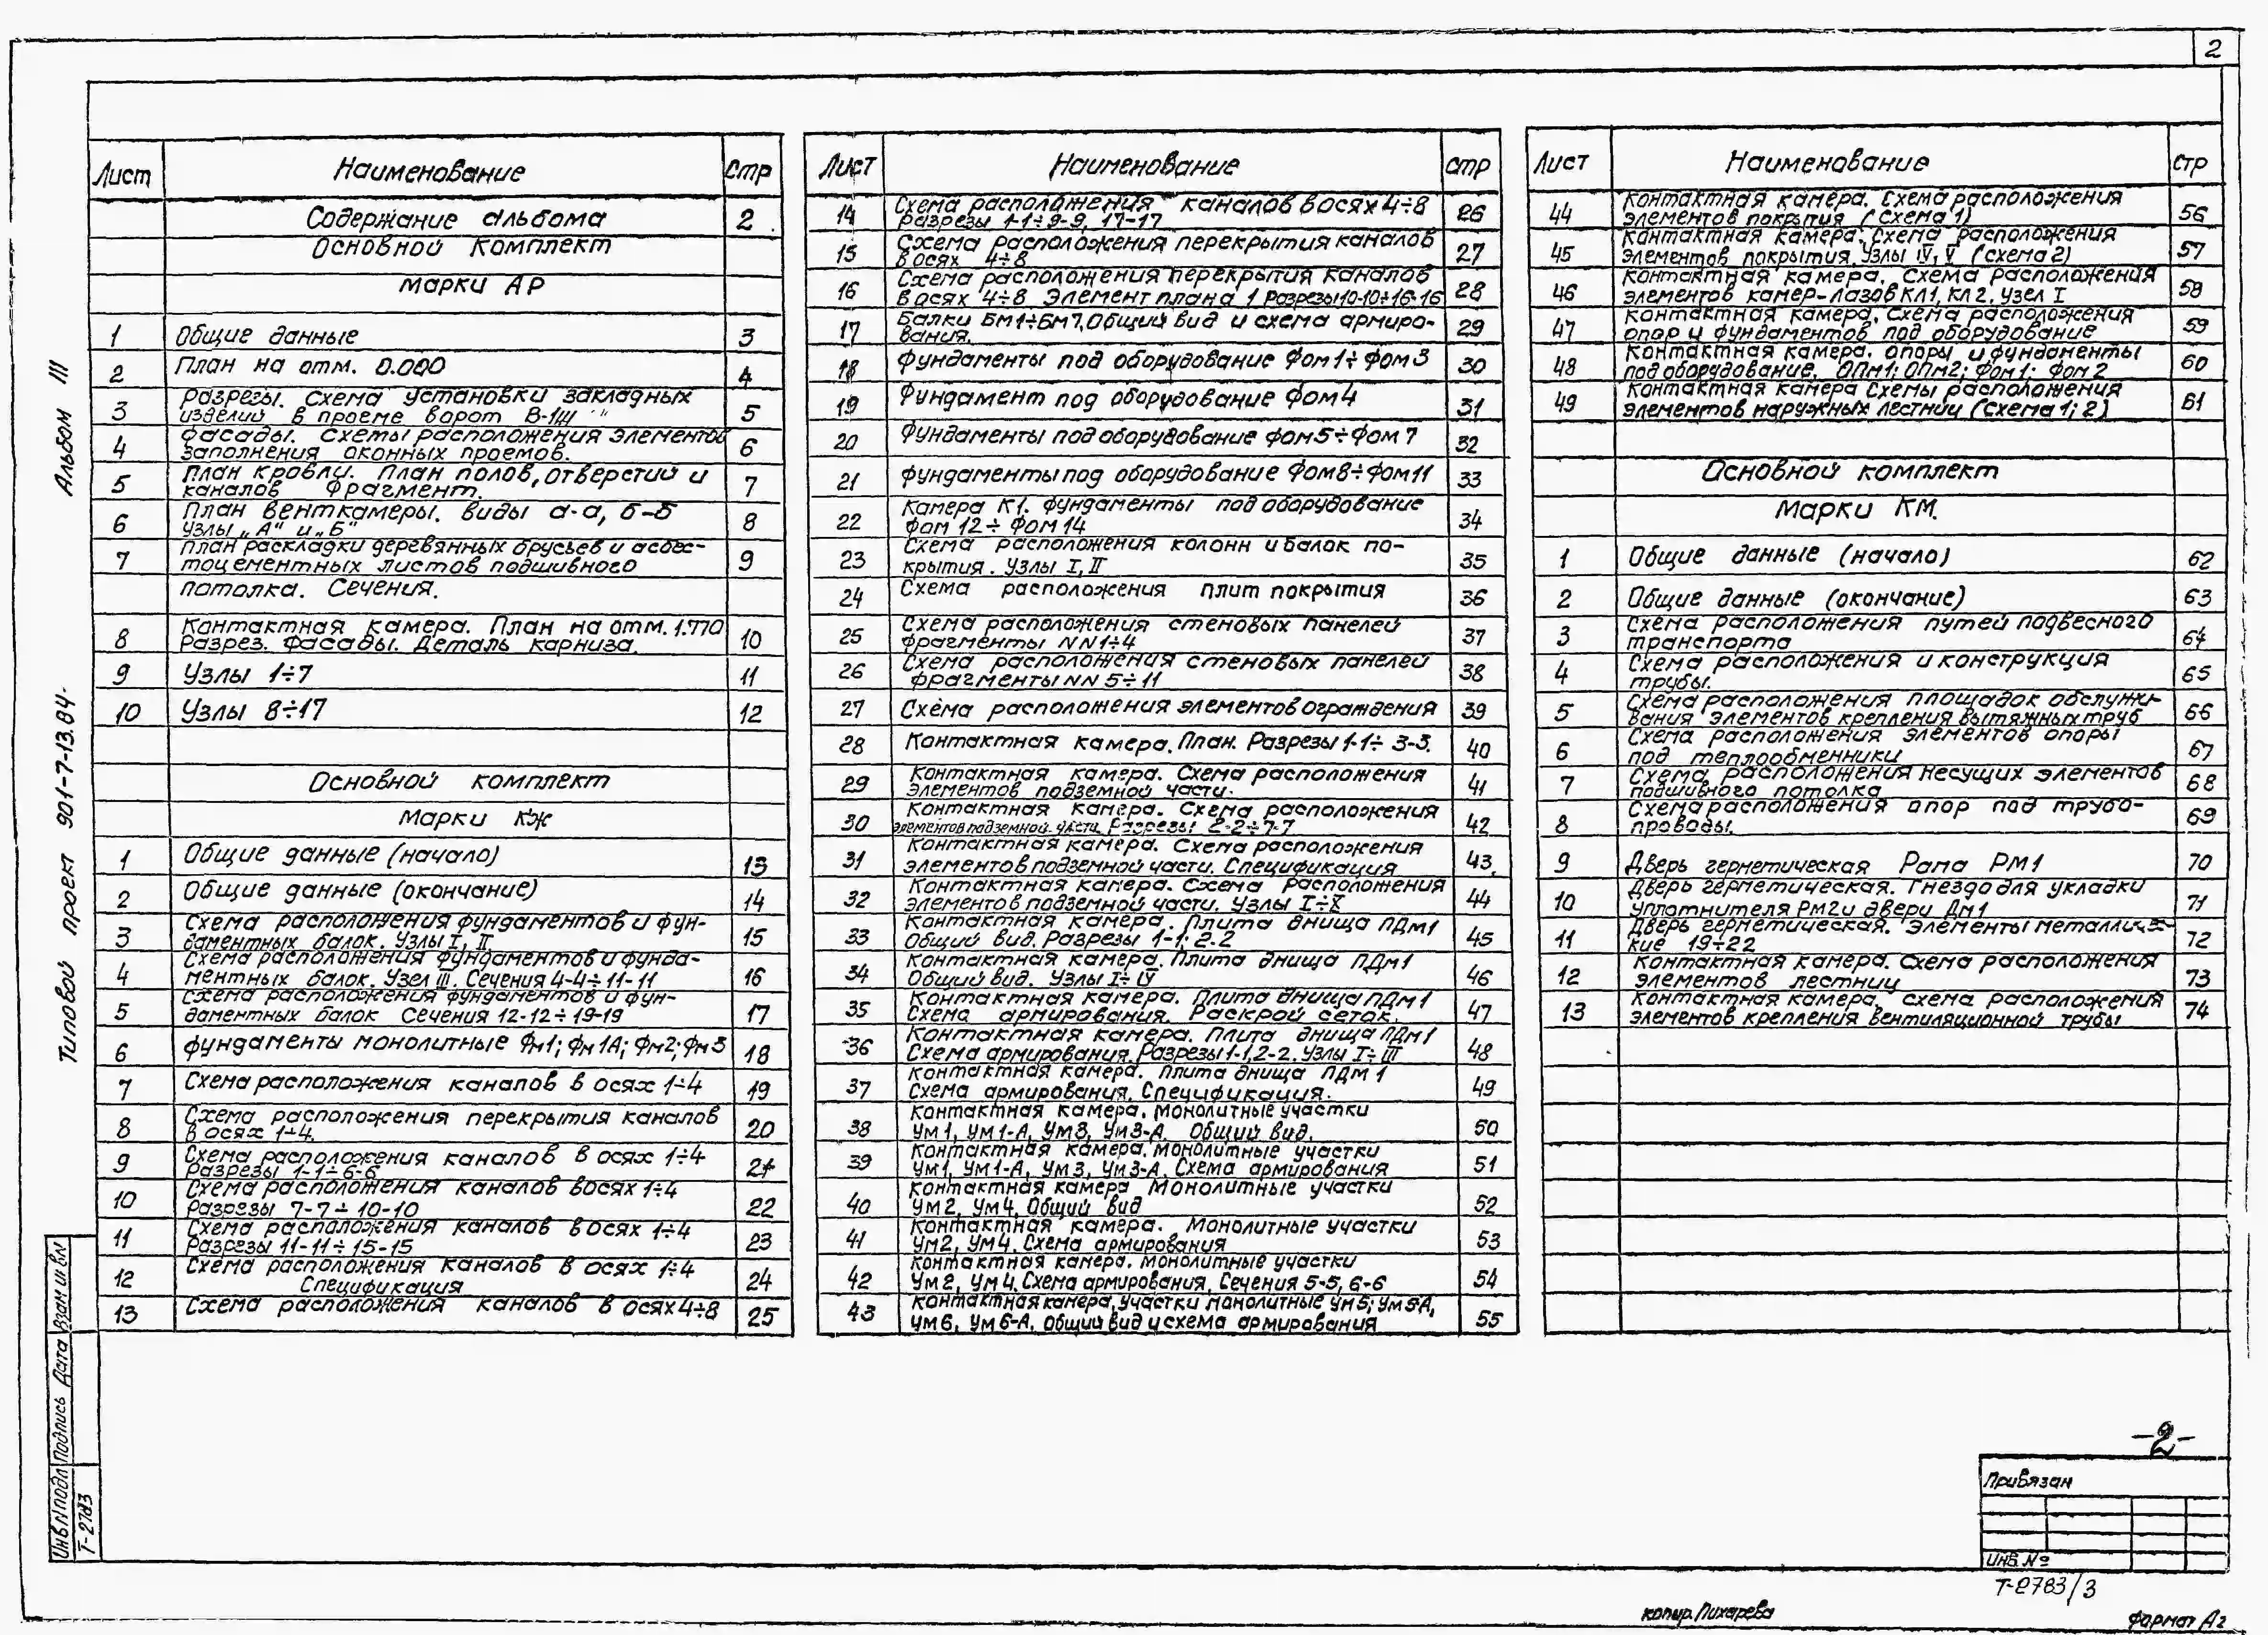 2
Лист Наименование Стр
Содержание альбома 2
Основной комплект
марки АР
1 Общие данные 3
2 План на отм. 0.000 4
3 Разрезы. Схема установки закладных
изделий в проеме ворот В-1 5
4 Фасады. Схемы расположения элементов
заполнения оконных проемов. 6
5 План кровли. План полов, отверстий и
каналов Фрагмент. 7
6 План венткамеры. Виды а-а, б-б
Узлы „А" и „Б" 8
7 План раскладки деревянных брусьев и асбес-
тоцементных листов подшивного 9
потолка. Сечения.
8 Контактная камера. План на отм. 1.770
Разрез. Фасады. Деталь карниза. 10
9 Узлы 1÷7 11
10 Узлы 8÷17 12
Основной комплект
Марки КЖ
1 Общие данные (начало) 13
2 Общие данные (окончание) 14
3 Схема расположения фундаментов и фун-
даментных балок. Узлы I, II 15
4 Схема расположения фундаментов и фунда-
ментных балок. Узел III. Сечения 4-4÷11-11 16
5 Схема расположения фундаментов и фун-
даментных балок Сечения 12-12÷19-19 17
6 Фундаменты монолитные Фм1; Фм1А; Фм2; Фм3 18
7 Схема расположения каналов в осях 1÷4 19
8 Схема расположения перекрытия каналов
в осях 1÷4. 20
9 Схема расположения каналов в осях 1÷4
Разрезы 1-1÷6-6 21
10 Схема расположения каналов в осях 1÷4
Разрезы 7-7÷10-10 22
11 Схема расположения каналов в осях 1÷4
Разрезы 11-11÷15-15 23
12 Схема расположения каналов в осях 1÷4
Спецификация 24
13 Схема расположения каналов в осях 4÷8 25
Лист Наименование стр
14 Схема расположения каналов в осях 4÷8
Разрезы 1-1÷9-9, 17-17 26
15 Схема расположения перекрытия каналов
в осях 4÷8 27
16 Схема расположения перекрытия каналов
в осях 4÷8 Элемент плана 1 Разрезы 10-10÷16-16 28
17 Балки Бм1÷Бм7. Общий вид и схема армиро-
вания. 29
18 Фундаменты под оборудование Фом1÷Фом3 30
19 Фундамент под оборудование Фом4 31
20 Фундаменты под оборудование Фом5÷Фом7 32
21 Фундаменты под оборудование Фом8÷Фом11 33
22 Камера К1. Фундаменты под оборудование
Фом12÷Фом14 34
23 Схема расположения колонн и балок по-
крытия. Узлы I, II 35
24 Схема расположения плит покрытия 36
25 Схема расположения стеновых панелей
Фрагменты NN1÷4 37
26 Схема расположения стеновых панелей
фрагменты NN 5÷11 38
27 Схема расположения элементов ограждения 39
28 Контактная камера. План. Разрезы 1-1÷3-3. 40
29 Контактная камера. Схема расположения
элементов подземной части. 41
30 Контактная камера. Схема расположения
элементов подземной части. Разрезы 2-2÷7-7 42
31 Контактная камера. Схема расположения
элементов подземной части. Спецификация 43
32 Контактная камера. Схема расположения
элементов подземной части. Узлы I÷X 44
33 Контактная камера. Плита днища ПДм1
Общий вид. Разрезы 1-1; 2-2 45
34 Контактная камера. Плита днища ПДм1
Общий вид. Узлы I÷IV 46
35 Контактная камера. Плита днища ПДм1
Схема армирования. Раскрой сеток. 47
36 Контактная камера. Плита днища ПДм1
Схема армирования. Разрезы 1-1, 2-2. Узлы I÷III 48
37 Контактная камера. Плита днища ПДм1
Схема армирования. Спецификация. 49
38 Контактная камера. Монолитные участки
Ум1, Ум1-А, Ум3, Ум3-А. Общий вид. 50
39 Контактная камера. Монолитные участки
Ум1, Ум1-А, Ум3, Ум3-А. Схема армирования 51
40 Контактная камера Монолитные участки
Ум2, Ум4. Общий вид 52
41 Контактная камера. Монолитные участки
Ум2, Ум4. Схема армирования 53
42 Контактная камера. Монолитные участки
Ум2, Ум4. Схема армирования. Сечения 5-5, 6-6 54
43 Контактная камера, участки монолитные Ум5; Ум5-А,
Ум6, Ум6-А. Общий вид и схема армирования 55
Лист Наименование Стр
44 Контактная камера. Схема расположения
элементов покрытия (схема 1) 56
45 Контактная камера. Схема расположения
элементов покрытия. Узлы IV, V (схема 2) 57
46 Контактная камера. Схема расположения
элементов камер-лазов КЛ1, КЛ2. Узел I 58
47 Контактная камера. Схема расположения
опор и фундаментов под оборудование 59
48 Контактная камера. Опоры и фундаменты
под оборудование. ОПм1; ОПм2; Фом1; Фом2 60
49 Контактная камера Схемы расположения
элементов наружных лестниц (схема 1; 2) 61
Основной комплект
Марки КМ.
1 Общие данные (начало) 62
2 Общие данные (окончание) 63
3 Схема расположения путей подвесного
транспорта 64
4 Схема расположения и конструкция
трубы. 65
5 Схема расположения площадок обслужи-
вания элементов крепления вытяжных труб 66
6 Схема расположения элементов опоры
под теплообменники 67
7 Схема расположения несущих элементов
подшивного потолка 68
8 Схема расположения опор под трубо-
проводы. 69
9 Дверь герметическая Рама РМ1 70
10 Дверь герметическая. Гнездо для укладки
уплотнителя РМ2 и двери Дм1 71
11 Дверь герметическая. Элементы металличес-
кие 19÷22 72
12 Контактная камера. Схема расположения
элементов лестниц 73
13 Контактная камера, схема расположения
элементов крепления вентиляционной трубы 74
Типовой проект 901-7-13.84- Альбом III
Инв N подл Подпись Дата Взам инв N
Т-2783
-2-
Привязан
Инв. №
Т-2783/3
копир. Лихарева
Формат А2